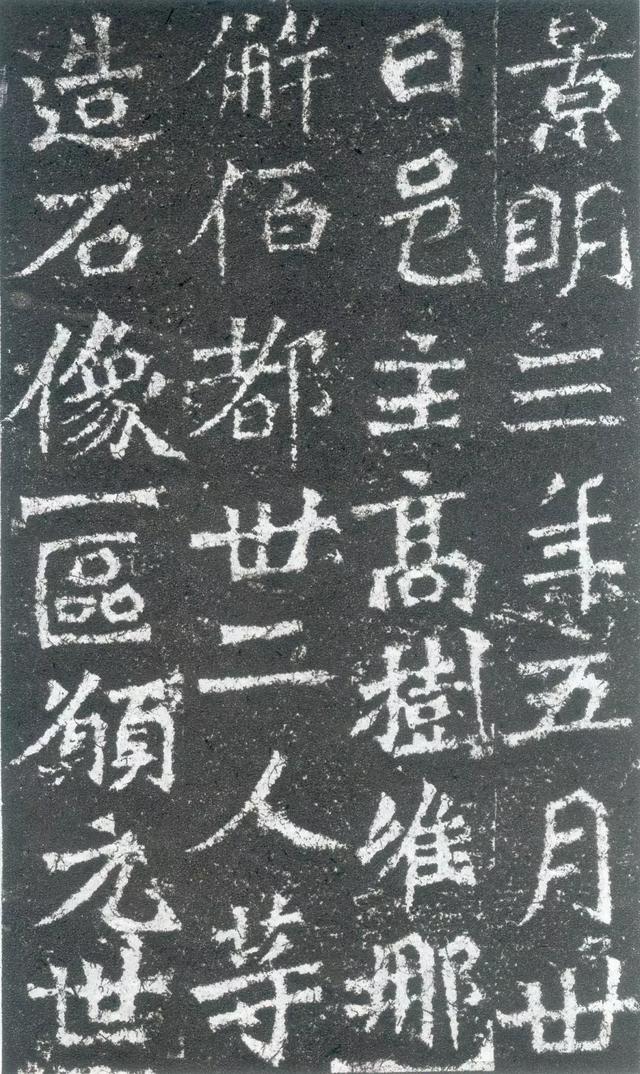 景明三年五月卅
日邑主高樹唯那
解佰都卅二人等
造石像一區願元世